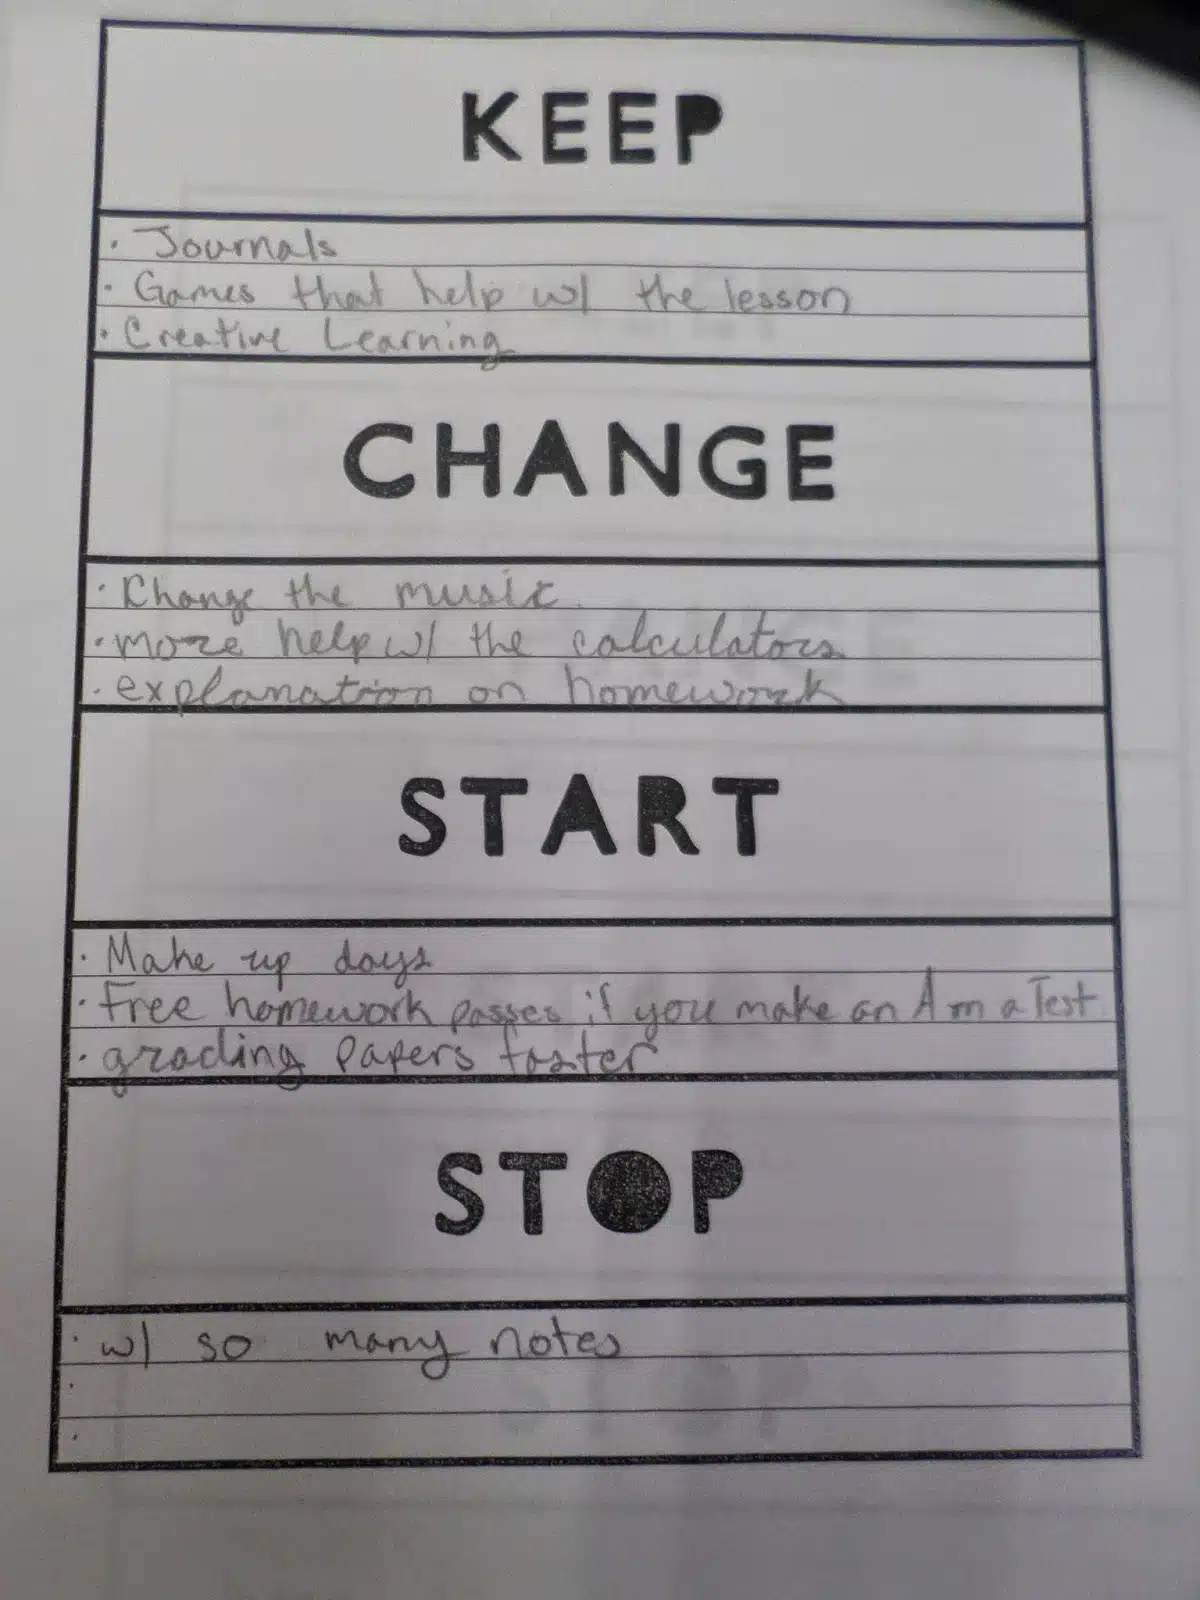 KEEP
· Journals
· Games that help w/ the lesson
· Creative Learning
CHANGE
· Change the music.
· more help w/ the calculators
· explanation on homework
START
· Make up days
· Free homework passes if you make an A on a Test.
· grading papers faster
STOP
· w/ so many notes
·
·